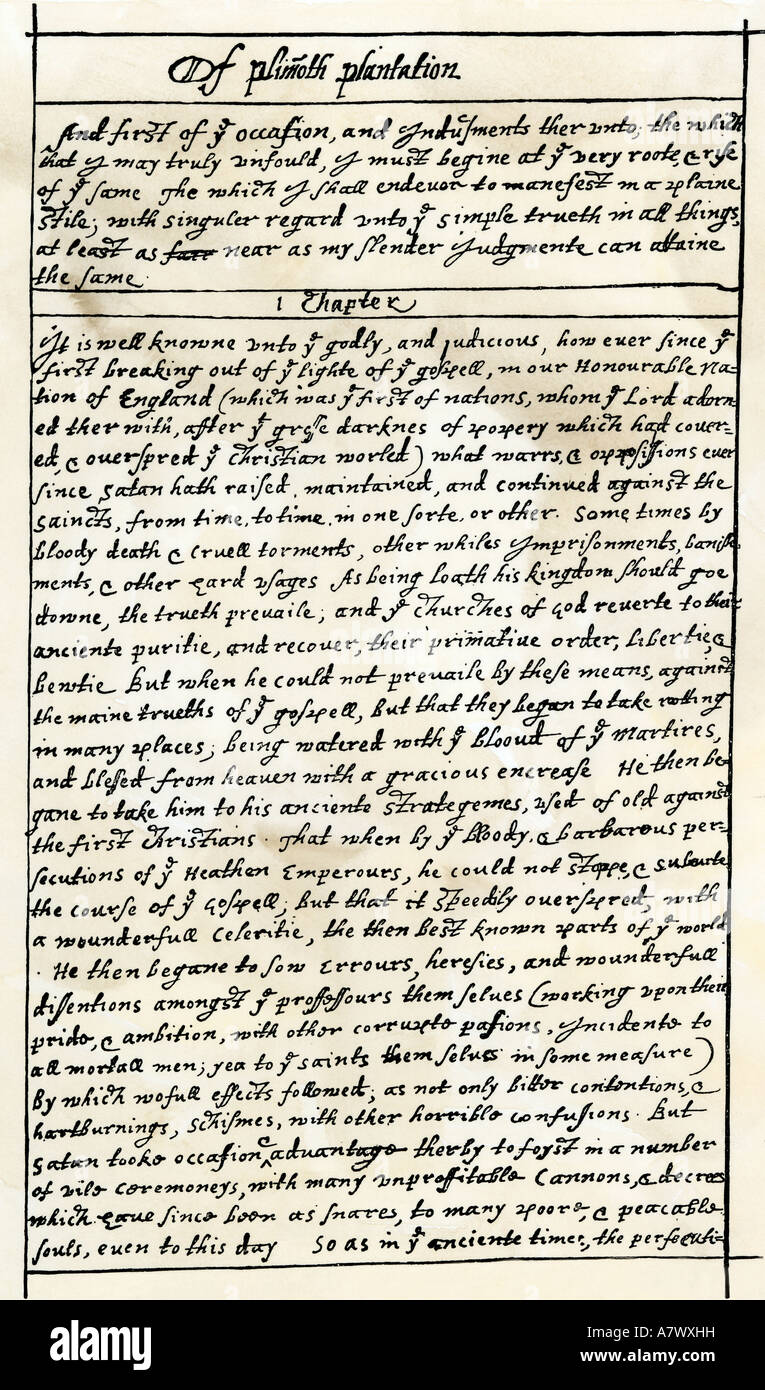 Of plim̃oth plantation
And first of yͤ occasion, and Indusments ther unto; the which
that I may truly unfould, I must begine at yͤ very roote, & rise
of yͤ same The which I shall endevor to manefest in a plaine
stile; with singuler regard unto yͤ simple trueth in all things,
at least as farr near as my slender Judgmente can attaine
the same.
1 Chapter
It is well knowne unto yͤ godly, and judicious, how ever since yͤ
first breaking out of yͤ lighte of yͤ gospell, in our Honourable Na=
tion of England (which was yͤ first of nations, whom yͤ Lord adorn=
ed ther with, after yͤ grosse darknes of popery which had cover=
ed, & overspred yͤ Christian world) what warrs, & oppossissions ever
since Satan hath raised, maintained, and continued against the
Saincts, from time, to time, in one sorte, or other. Some times by
bloody death & cruell torments, other whiles Imprisonments, banish=
ments, & other hard usages As being loath his kingdom should goe
downe, the trueth prevaile; and yͤ Churches of God reverte to their
anciente puritie, and recover, their prim̃ative order, libertie, &
bewtie But when he could not prevaile by these means, against
the maine trueths of yͤ gospell, but that they began to take rotting
in many places; being watered with yͤ bloud of yͤ Martires,
and blessed from heaven with a gracious encrease He then be=
gane to take him to his anciente strategemes, used of old against
the first Christians. That when by yͤ bloody, & barbarous per=
secutions of yͤ Heathen Emperours, he could not stoppe, & subverte
the course of yͤ Gospell; but that it speedily overspred, with
a wounderfull celeritie, the then best known parts of yͤ world
. He then begane to sow Errours, heresies, and wounderfull
dissentions amongst yͤ proffessours them selves (working upon their
pride, & ambition, with other corrupte passions, Incidente to
all mortall men; yea to yͤ saints them selves in some measure)
By which wofull effects followed; as not only bitter contentions, &
hartburnings, schismes, with other horrible confusions. But
Satan tooke occasion & advantage therby to foyst in a number
of vile ceremoneys, with many unproffitable Cannons, & decrees
which have since been as snares, to many poore, & peacable
souls, even to this day So as in yͤ anciente times, the persecuti=
alamy
Image ID: A7WXHH
www.alamy.com